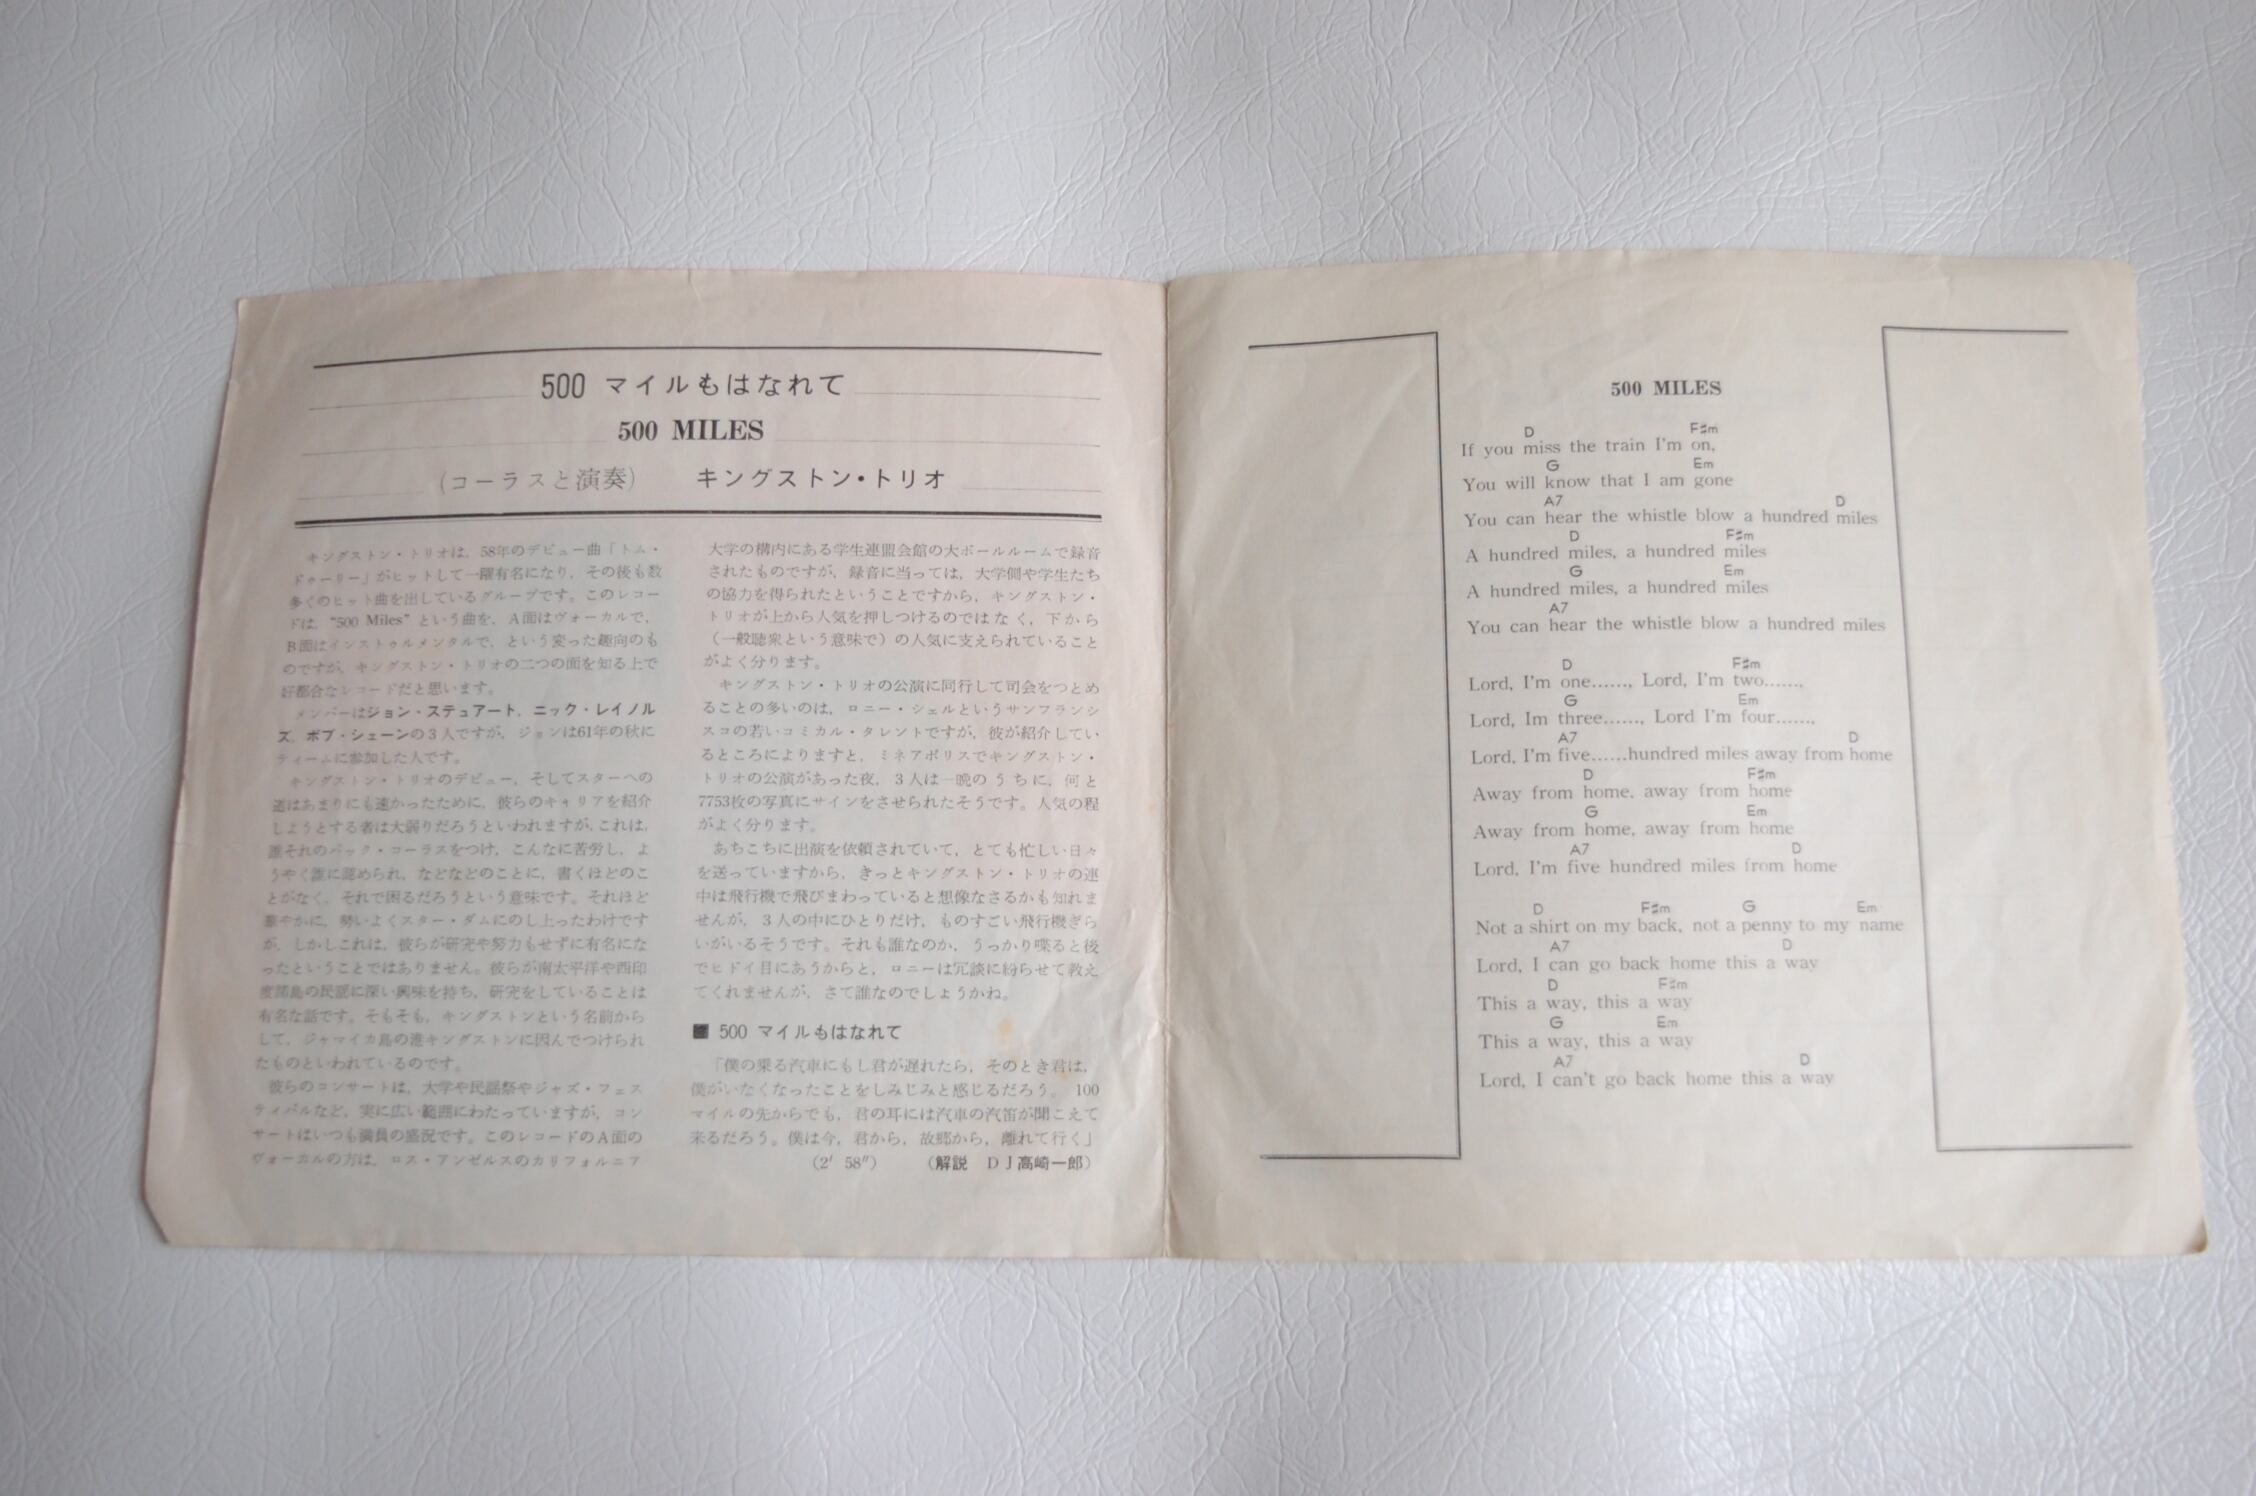 500 マイルもはなれて
500 MILES
(コーラスと演奏) キングストン・トリオ
キングストン・トリオは，58年のデビュー曲「トム・
ドゥーリー」がヒットして一躍有名になり，その後も数
多くのヒット曲を出しているグループです。このレコー
ドは，“500 Miles” という曲を，A面はヴォーカルで，
B面はインストゥルメンタルで，という変った趣向のも
のですが，キングストン・トリオの二つの面を知る上で
好都合なレコードだと思います。
メンバーはジョン・ステュアート，ニック・レイノル
ズ，ボブ・シェーンの３人ですが，ジョンは61年の秋に
ティームに参加した人です。
キングストン・トリオのデビュー，そしてスターへの
道はあまりにも速かったために，彼らのキャリアを紹介
しようとする者は大弱りだろうといわれますが，これは，
誰それのバック・コーラスをつけ，こんなに苦労し，よ
うやく誰に認められ，などなどのことに，書くほどのこ
とがなく，それで困るだろうという意味です。それほど
華やかに，勢いよくスター・ダムにのし上ったわけです
が，しかしこれは，彼らが研究や努力もせずに有名にな
ったということではありません。彼らが南太平洋や西印
度諸島の民謡に深い興味を持ち，研究をしていることは
有名な話です。そもそも，キングストンという名前から
して，ジャマイカ島の港キングストンに因んでつけられ
たものといわれているのです。
彼らのコンサートは，大学や民謡祭やジャズ・フェス
ティバルなど，実に広い範囲にわたっていますが，コン
サートはいつも満員の盛況です。このレコードのA面の
ヴォーカルの方は，ロス・アンゼルスのカリフォルニア
大学の構内にある学生連盟会館の大ボールルームで録音
されたものですが，録音に当っては，大学側や学生たち
の協力を得られたということですから，キングストン・
トリオが上から人気を押しつけるのではなく，下から
（一般聴衆という意味で）の人気に支えられていること
がよく分ります。
キングストン・トリオの公演に同行して司会をつとめ
ることの多いのは，ロニー・シェルというサンフランシ
スコの若いコミカル・タレントですが，彼が紹介してい
るところによりますと，ミネアポリスでキングストン・
トリオの公演があった夜，３人は一晩のうちに，何と
7753枚の写真にサインをさせられたそうです。人気の程
がよく分ります。
あちこちに出演を依頼されていて，とても忙しい日々
を送っていますから，きっとキングストン・トリオの連
中は飛行機で飛びまわっていると想像なさるかも知れま
せんが，３人の中にひとりだけ，ものすごい飛行機ぎら
いがいるそうです。それも誰なのか，うっかり喋ると後
でヒドイ目にあうからと，ロニーは冗談に紛らせて教え
てくれませんが，さて誰なのでしょうかね。
■ 500 マイルもはなれて
「僕の乗る汽車にもし君が遅れたら，そのとき君は，
僕がいなくなったことをしみじみと感じるだろう。 100
マイルの先からでも，君の耳には汽車の汽笛が聞こえて
来るだろう。僕は今，君から，故郷から，離れて行く」
(2′ 58″) (解説 DJ高崎一郎)
500 MILES
D F♯m
If you miss the train I'm on,
G Em
You will know that I am gone
A7 D
You can hear the whistle blow a hundred miles
D F♯m
A hundred miles, a hundred miles
G Em
A hundred miles, a hundred miles
A7
You can hear the whistle blow a hundred miles
D F♯m
Lord, I'm one......, Lord, I'm two......,
G Em
Lord, Im three......, Lord I'm four......,
A7 D
Lord, I'm five......hundred miles away from home
D F♯m
Away from home, away from home
G Em
Away from home, away from home
A7 D
Lord, I'm five hundred miles from home
D F♯m G Em
Not a shirt on my back, not a penny to my name
A7 D
Lord, I can go back home this a way
D F♯m
This a way, this a way
G Em
This a way, this a way
A7 D
Lord, I can't go back home this a way